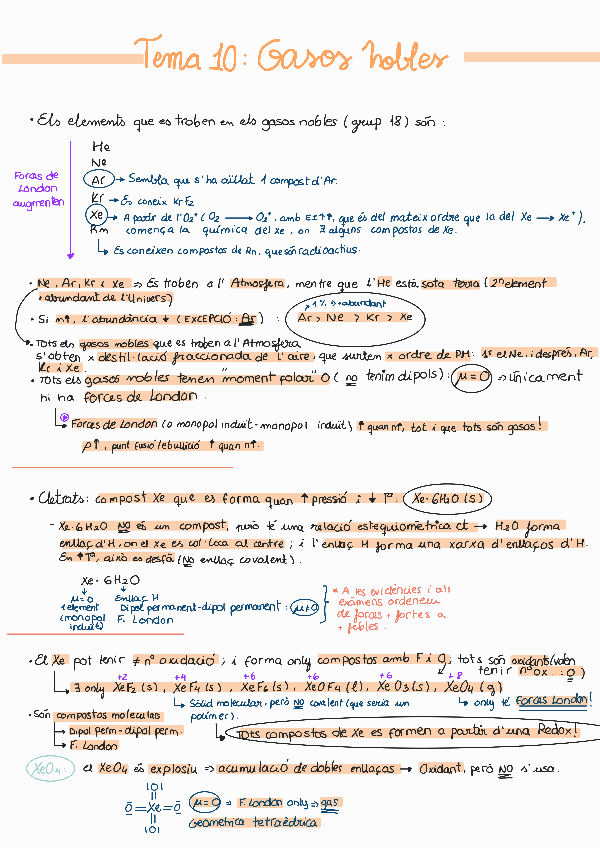 Tema 10: Gasos nobles
• Els elements que es troben en els gasos nobles (grup 18) són:
Forces de London augmenten
He
Ne
Ar → Sembla que s'ha aïllat 1 compost d'Ar.
Kr → Es coneix KrF2
Xe → A partir de l'O2+ (O2 → O2+, amb EI↑↑, que és del mateix ordre que la del Xe → Xe+),
Rn comença la química del Xe, on ∃ alguns compostos de Xe.
↳ Es coneixen compostos de Rn, que són radioactius.
• Ne, Ar, Kr i Xe ⇒ Es troben a l'Atmosfera, mentre que l'He està sota terra (2n element
+ abundant de l'Univers)
• Si n↑, l'abundància ↓ (EXCEPCIÓ: Ar) :
>1% → + abundant
Ar > Ne > Kr > Xe
• Tots els gasos nobles que es troben a l'Atmosfera
s'obten x destil·lació fraccionada de l'aire, que surten x ordre de PM: 1r el Ne, i després, Ar,
Kr i Xe.
• Tots els gasos nobles tenen "moment polar" 0 (no tenim dipols): μ=0 ⇒ Únicament
hi ha forces de London.
↳ Forces de London (o monopol induït-monopol induït) ↑ quan n↑, tot i que tots són gasos!
ρ↑, punt fusió/ebullició ↑ quan n↑.
• Cletrats: compost Xe que es forma quan ↑ pressió i ↓ Tª: Xe·6H2O (s)
- Xe·6H2O NO és un compost, però té una relació estequiometrica ct → H2O forma
enllaç d'H, on el Xe es col·loca al centre; i l'enllaç H forma una xarxa d'enllaços d'H.
En ↑Tª, això es desfà (No enllaç covalent).
Xe · 6H2O
μ=0
1 element
(monopol
induït)
Enllaç H
Dipol permanent-dipol permanent: μ≠0
F. London
* A les evidències i als
exàmens ordenem
de forces + fortes a
+ febles.
• El Xe pot tenir ≠ nº oxidació; i forma only compostos amb F i O; tots són oxidants (volen
tenir nº ox. : 0)
+2 +4 +6 +6 +6 +8
↳ ∃ only XeF2 (s), XeF4 (s), XeF6 (s), XeOF4 (l), XeO3 (s), XeO4 (g)
↳ Sòlid molecular, però NO covalent (que seria un
polímer).
↳ only té Forces London!
• Són compostos moleculars
→ Dipol perm-dipol perm.
↳ F. London
↳ Tots compostos de Xe es formen a partir d'una Redox!
XeO4: el XeO4 és explosiu ⇒ acumulació de dobles enllaços → Oxidant, però NO s'usa.
|O|
O=Xe=O
|O|
μ=0 ⇒ F. London only ⇒ gas
Geometrica tetraèdrica